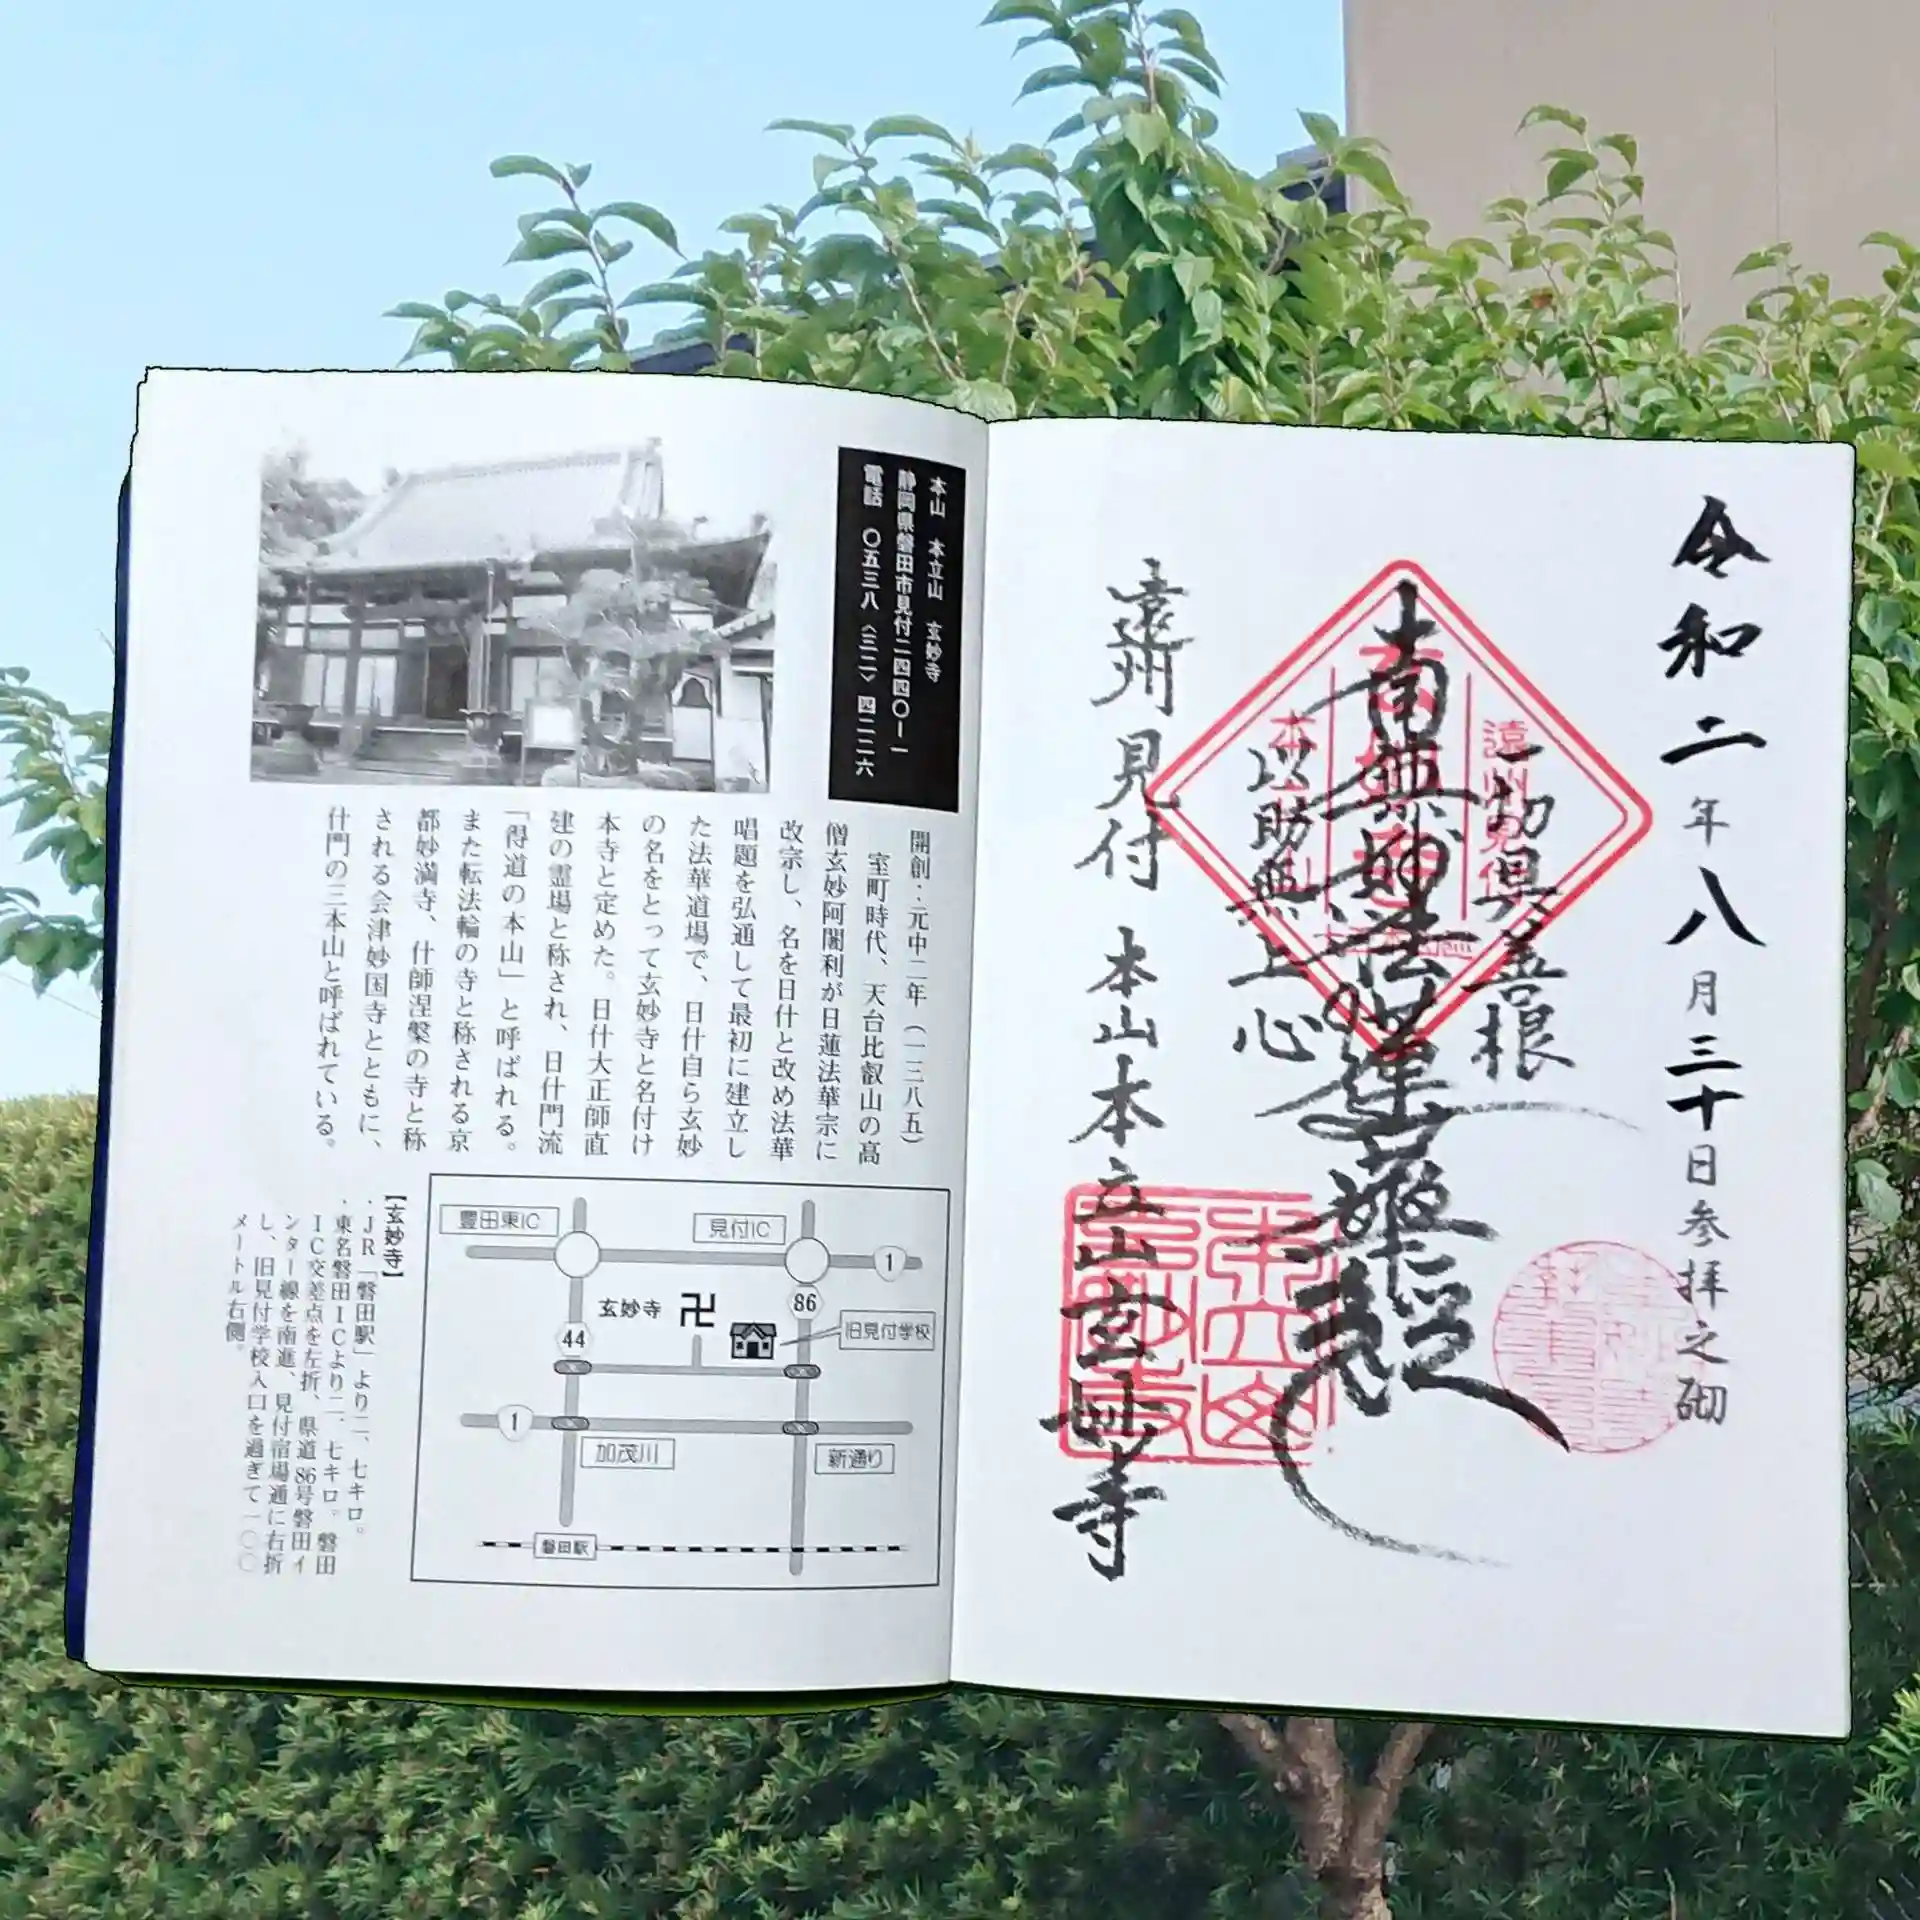 令和二年八月三十日参拝之砌
一切倶善根
南無妙法蓮華経
以助無上心
遠州見付 本山本立山玄妙寺
遠州見付
本立山
本山 本立山 玄妙寺
静岡県磐田市見付二四四〇ー一
電話 〇五三八〈三二〉四二二六
開創・元中二年(一三八五)
室町時代、天台比叡山の高
僧玄妙阿闍利が日蓮法華宗に
改宗し、名を日什と改め法華
唱題を弘通して最初に建立し
た法華道場で、日什自ら玄妙
の名をとって玄妙寺と名付け
本寺と定めた。日什大正師直
建の霊場と称され、日什門流
「得道の本山」と呼ばれる。
また転法輪の寺と称される京
都妙満寺、什師涅槃の寺と称
される会津妙国寺とともに、
什門の三本山と呼ばれている。
豊田東IC
見付IC
1
玄妙寺
卍
86
44
旧見付学校
1
加茂川
新通り
磐田駅
【玄妙寺】
・JR「磐田駅」より二、七キロ。
・東名磐田ICより二、七キロ。磐田
IC交差点を左折、県道86号磐田イ
ンター線を南進、見付宿場通に右折
し、旧見付学校入口を過ぎて一〇〇
メートル右側。